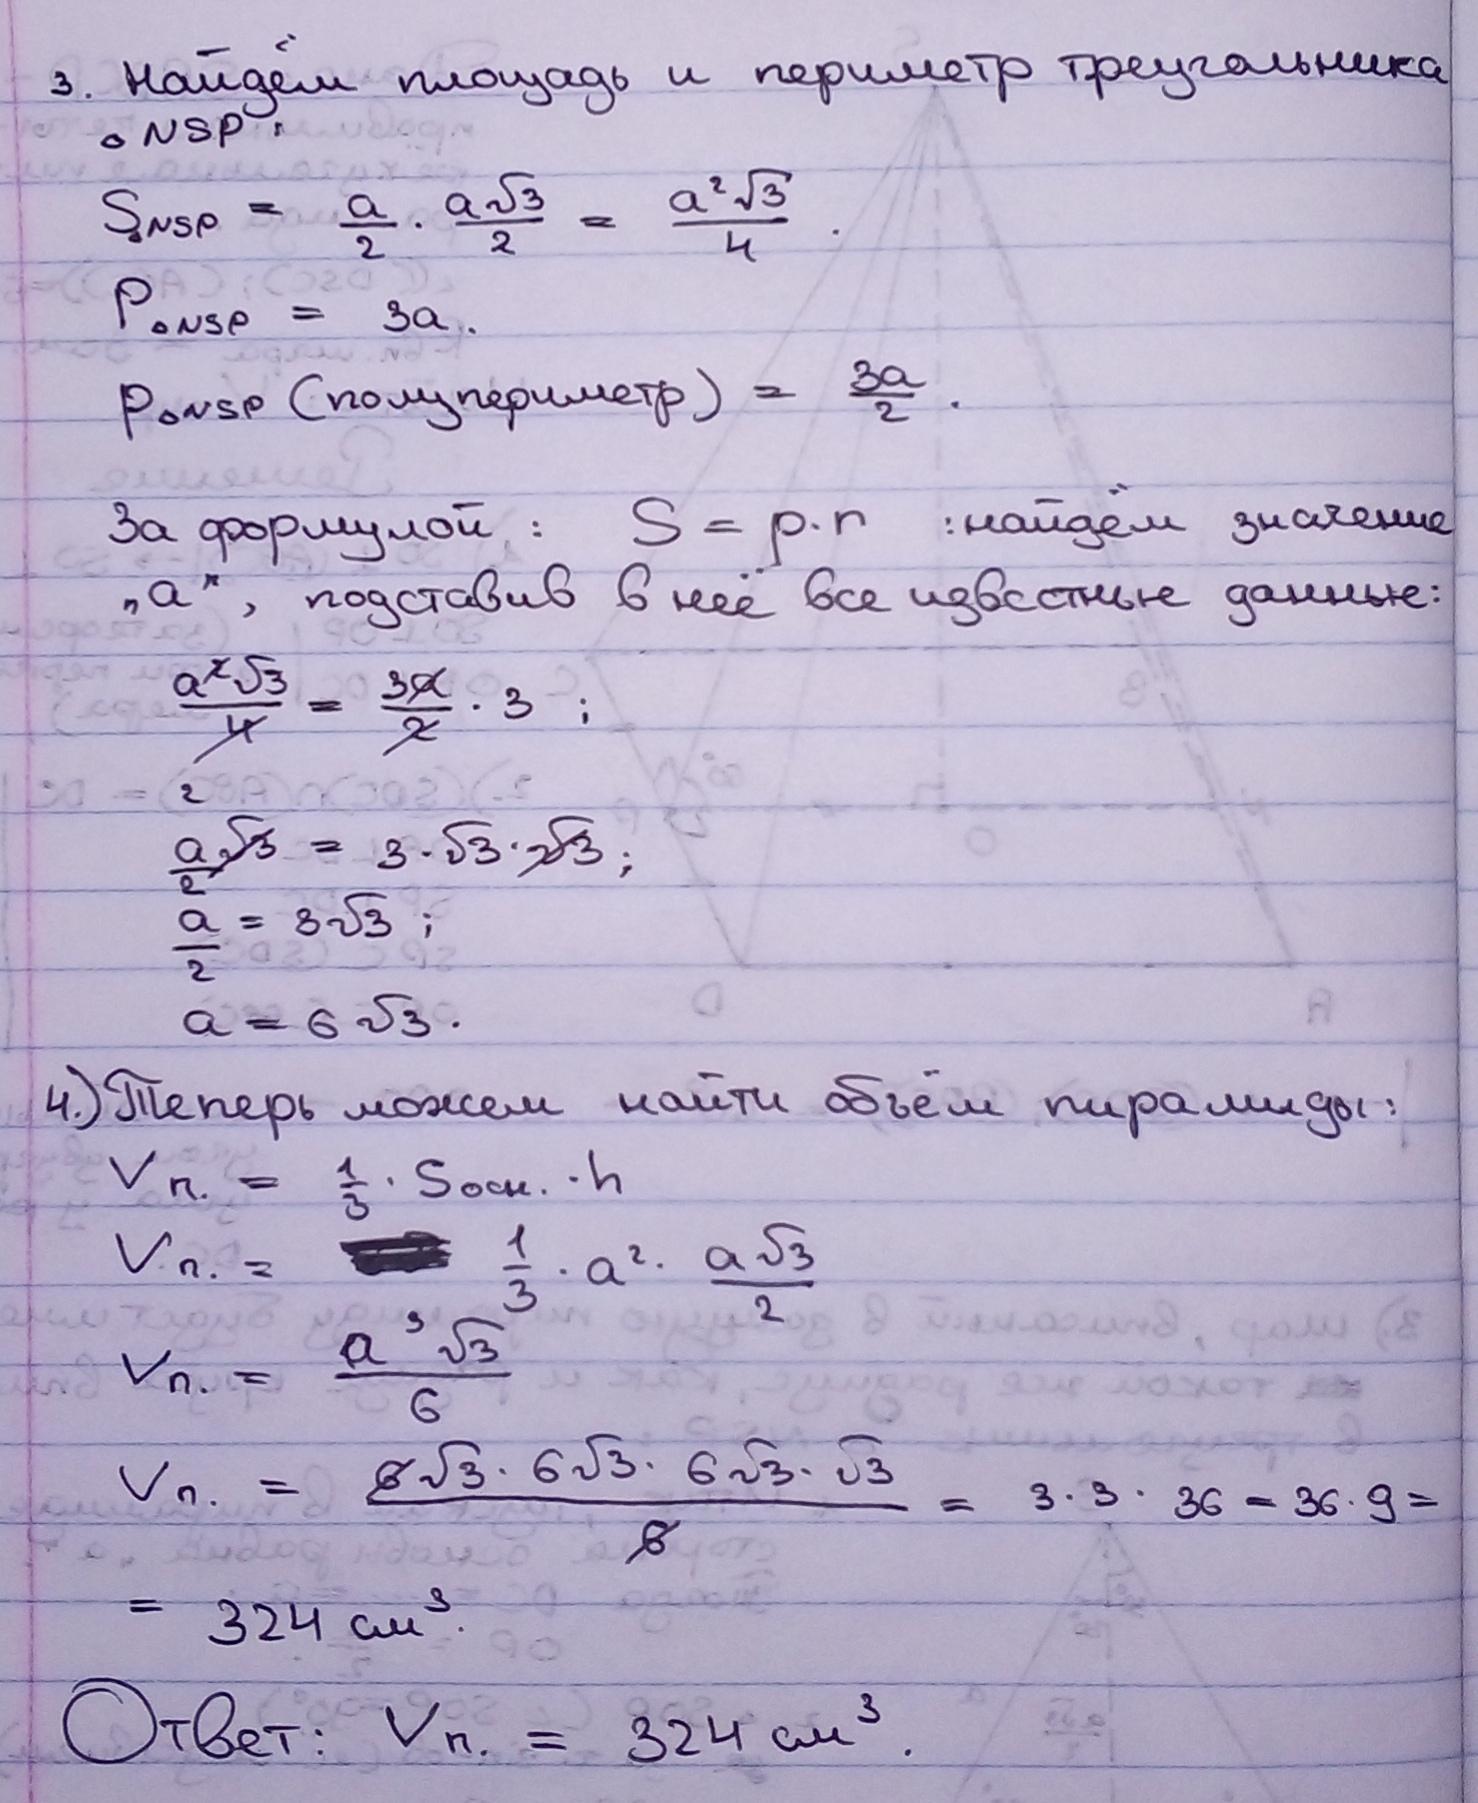 3. Найдём площадь и периметр треугольника
△NSP:
S△NSP = a/2 · a√3/2 = a²√3/4.
P△NSP = 3a.
p△NSP (полупериметр) = 3a/2.
За формулой: S = p·r :найдём значение
„a“, подставив в неё все известные данные:
a²√3/4 = 3a/2 · 3 ;
2
a√3/2 = 3·√3·√3;
a/2 = 3√3;
a = 6√3.
4.) Теперь можем найти объём пирамиды:
Vп. = 1/3 · Sосн. · h
Vп. = 1/3 · a² · a√3/2
Vп. = a³√3/6
Vп. = 6√3 · 6√3 · 6√3 · √3/6 = 3·3·36 = 36·9 =
= 324 см³.
Ответ: Vп. = 324 см³.